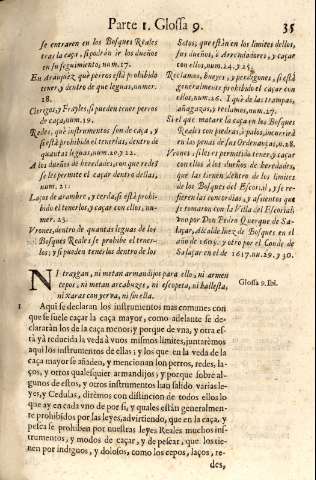 Parte 1. Glossa 9. 35
se entraren en los Bosques Reales
tras la caça, si podràn ir los dueños
en su seguimiento, num. 27.
En Aranjuez què perros està prohibido
tener, y dentro de que leguas, numer.
28.
Clerigos, y Frayles, si pueden tener perros
de caça, num. 19.
Redes, què instrumentos son de caça, y
si està prohibido el tenerlas, dentro de
quantas leguas, num. 20. y 22.
A los dueños de heredades, con que redes
se les permite el caçar dentro dellas,
num. 21.
Laços de arambre, y cerda, si està prohi-
bido el tenerlos, y caçar con ellos, nu-
mer. 23.
Vrones, dentro de quantas leguas de los
Bosques Reales se prohibe el tener-
los, y si pueden tenerlos dentro de los
Sotos, que estàn en los limites dellos,
sus dueños, ò Arrendadores, y caçar
con ellos, num. 24. y 25.
Reclamos, bueyes, y perdigones, si està
generalmente prohibido el caçar con
ellos, num. 26. I què de las trampas,
añagaças, y reclamos, num. 27.
Si el que matare la caça en los Bosques
Reales con piedras, ò palos, incurrirà
en las penas de sus Ordenanças, n. 28.
Vrones, si les es permitido tener, y caçar
con ellos à los dueños de heredades,
que las tienen dentro de los limites
de los Bosques del Escorial, y se re-
fieren las concordias, y assientos que
se tomaron con la Villa del Escorial,
por Don Pedro Quexque de Sa-
laçar, alcalde luez de Bosques en el
año de 1605. y otro por el Conde de
Salaçar en el de 1617. nu. 29. y 30.
NI traygan, ni metan armandijos para ello, ni armen
cepos, ni metan arcabuzes, ni escopeta, ni ballesta,
ni xaras con yerva, ni sin ella.
Glossa 9. Ibi.
1 Aqui se declaran los instrumentos mas comunes con
que se suele caçar la caça mayor, como adelante se de-
claràràn los de la caça menor; y porque de vna, y otra es-
tà yà reducida la veda à vnos mismos limites, juntarèmos
aqui los instrumentos de ellas; y los que en la veda de la
caça mayor se añaden, y mencionan son perros, redes, la-
ços, y otros qualesquier armandijos; y porque sobre al-
gunos de estos, y otros instrumentos han salido varias le-
yes, y Cedulas, dirèmos con distincion de todos ellos lo
que ay en cada vno de por si, y quales estàn generalmen-
te prohibidos por las leyes, advirtiendo, que en la caça, y
pesca se prohiben por nuestras leyes Reales muchos ins-
trumentos, y modos de caçar, y de pescar, que los tie-
nen por indignos, y dolosos, como los cepos, laços, re-
des,